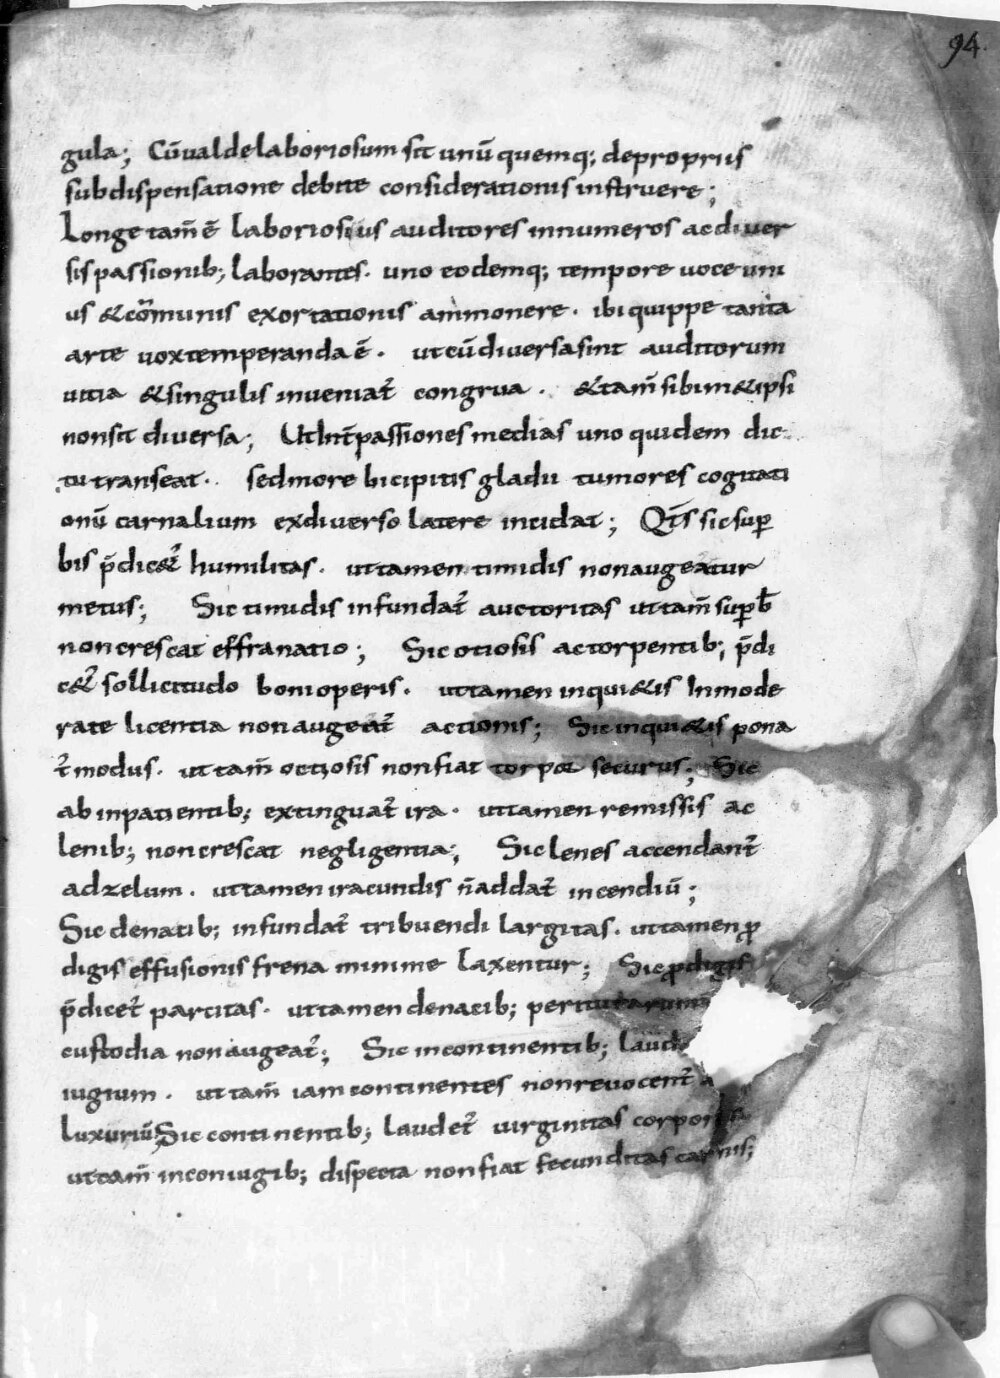 94.
gula; Cū valde laboriosum sit unū quemq; depropriis
subdispensatione debite considerationis instruere;
Longe tam̄ ē laboriosius auditores innumeros ac diver
sis passionib; laborantes. uno eodemq; tempore voce uni
us & cōmunis exortationis ammonere. ibi quippe tanta
arte vox temperanda ē. ut cū diversa sint auditorum
vitia & singulis inveniat̄ congrua. & tam̄ sibi im&ipsi
non sit diversa; Ut int̄ passiones medias uno quidem dic
tu transeat. sed more bicipitis gladii tumores cogitati
onū carnalium ex diverso latere incidat; Qt̄s sic sup̄
bis p̄dic&̄ humilitas. ut tamen timidis non augeatur
metus; Sic timidis infundat̄ auctoritas ut tam̄ sup̄b̄
non crescat effrenatio; Sic otiosis ac torpentib; p̄di
c&̄ sollicitudo boni operis. ut tamen inqui&is Inmode
rate licentia non augeat̄ actionis; Sic inqui&is pona
t̄ modus. ut tam̄ occiosis non fiat torpor securus; Sic
ab inpatientib; extinguat̄ ira. ut tamen remissis ac
lenib; non crescat negligentia; Sic lenes accendant̄
ad zelum. ut tamen iracundis n̄ addat̄ incendiū;
Sic denatib; infundat̄ tribuendi largitas. ut tamen p̄
digis effusionis frena minime laxentur; Sic p̄digis
p̄dicet̄ parcitas. ut tamen denacib; periturarum
custodia non augeat̄; Sic incontinentib; laud
iugium. ut tam̄ iam continentes non revocent̄ a
luxuriū; Sic continentib; laudet̄ virginitas corporis
ut tam̄ in coniugib; dispecta non fiat fecunditas carnis;